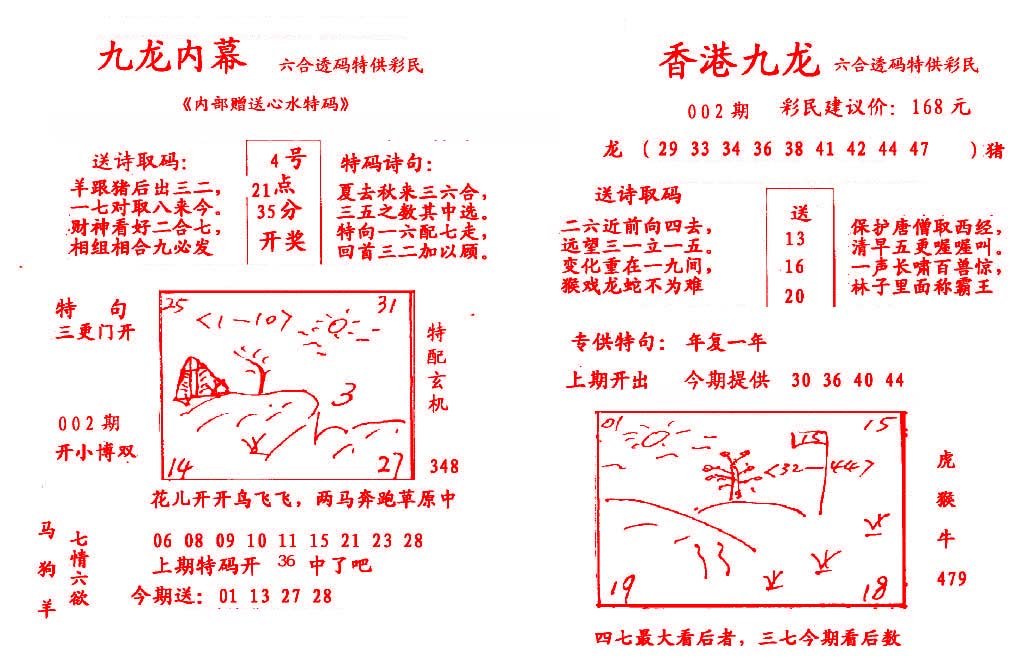 九龙内幕 六合透码特供彩民
《内部赠送心水特码》
送诗取码:
羊跟猪后出三二,
一七对取八来今。
财神看好二合七,
相组相合九必发
4号
21点
35分
开奖
特码诗句:
夏去秋来三六合,
三五之数其中选。
特向一六配七走,
回首三二加以顾。
特句
三更门开
002期
开小博双
25 31
<1-10>
3
14 27
特配玄机
348
花儿开开鸟飞飞,两马奔跑草原中
马狗羊
七情六欲
06 08 09 10 11 15 21 23 28
上期特码开 36 中了吧
今期送: 01 13 27 28
香港九龙 六合透码特供彩民
002期 彩民建议价: 168元
龙 (29 33 34 36 38 41 42 44 47 )猪
送诗取码
二六近前向四去,
远望三一立一五。
变化重在一九间,
猴戏龙蛇不为难
送
13
16
20
保护唐僧取西经,
清早五更喔喔叫。
一声长啸百兽惊,
林子里面称霸王
专供特句: 年复一年
上期开出 今期提供 30 36 40 44
01 15
15
<32-44>
19 18
虎
猴
牛
479
四七最大看后者,三七今期看后数